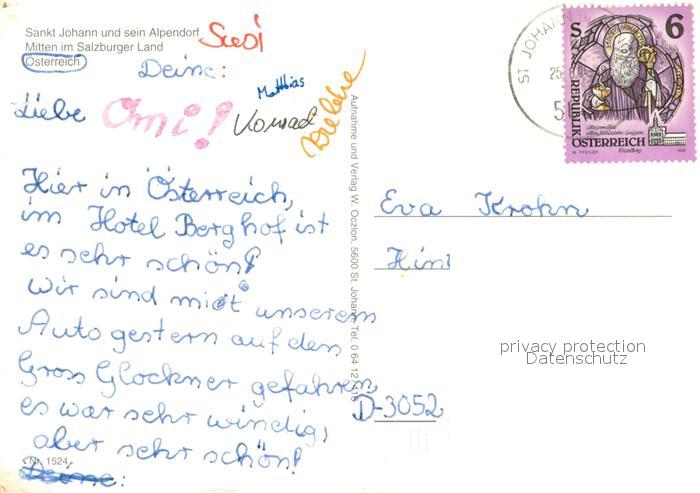 Sankt Johann und sein Alpendorf
Mitten im Salzburger Land
Österreich
Susi
Deine:
Matthias
Liebe Omi! Konrad
Hier in Österreich,
im Hotel Berghof ist
es sehr schön!
Wir sind mit unserem
Auto gestern auf den
Gross Glockner gefahren,
es war sehr windig,
aber sehr schön!
Deine:
Nr. 1524
Aufnahme und Verlag W. Oczlon, 5600 St. Johann, Tel. 0 64 12
ST. JOHANN
25.
6
S
REPUBLIK
ÖSTERREICH
Eva Krohn
D-3052
privacy protection
Datenschutz